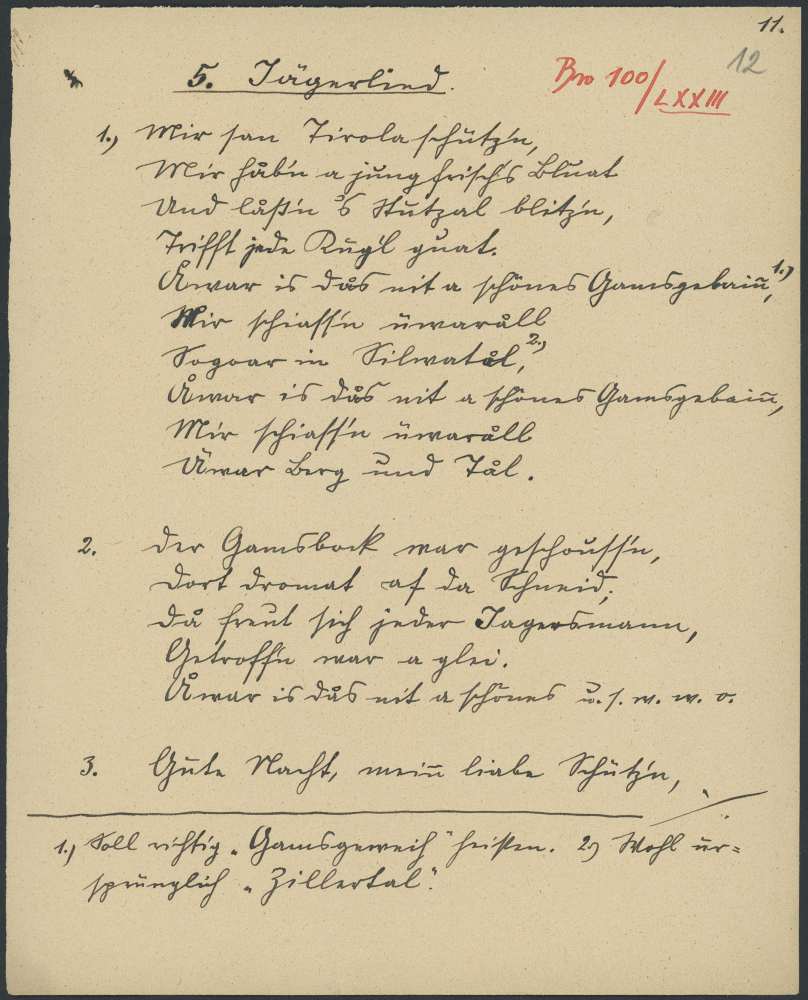 11.
12
5. Jägerlied.
Bro 100/LXXIII
1.) Mir san Tirola schütz'n,
Mir håb'n a jung frisch's Bluat
Und låß'n 's Stutzal blitz'n,
Trifft jede Kug'l guat.
Åwar is dås nit a schönes Gamsgebain̄,1.)
Mir schiass'n üwaråll
Sogoar in Silwatål,2.)
Åwar is dås nit a schönes Gamsgebain̄,
Mir schiass'n üwaråll
Üwar Berg und Tål.
2. Der Gamsbock war geschouss'n,
Dort dromat af da Schneid;
Då freut sich jeder Jagersmann,
Getroff'n war a glei.
Åwar is dås nit a schönes u. s. w. w. o.
3. Gute Nacht, mein̄ liabe Schütz'n,
1.) Soll richtig "Gamsgeweih" heißen. 2.) Wohl ur=
sprünglich "Zillertal".